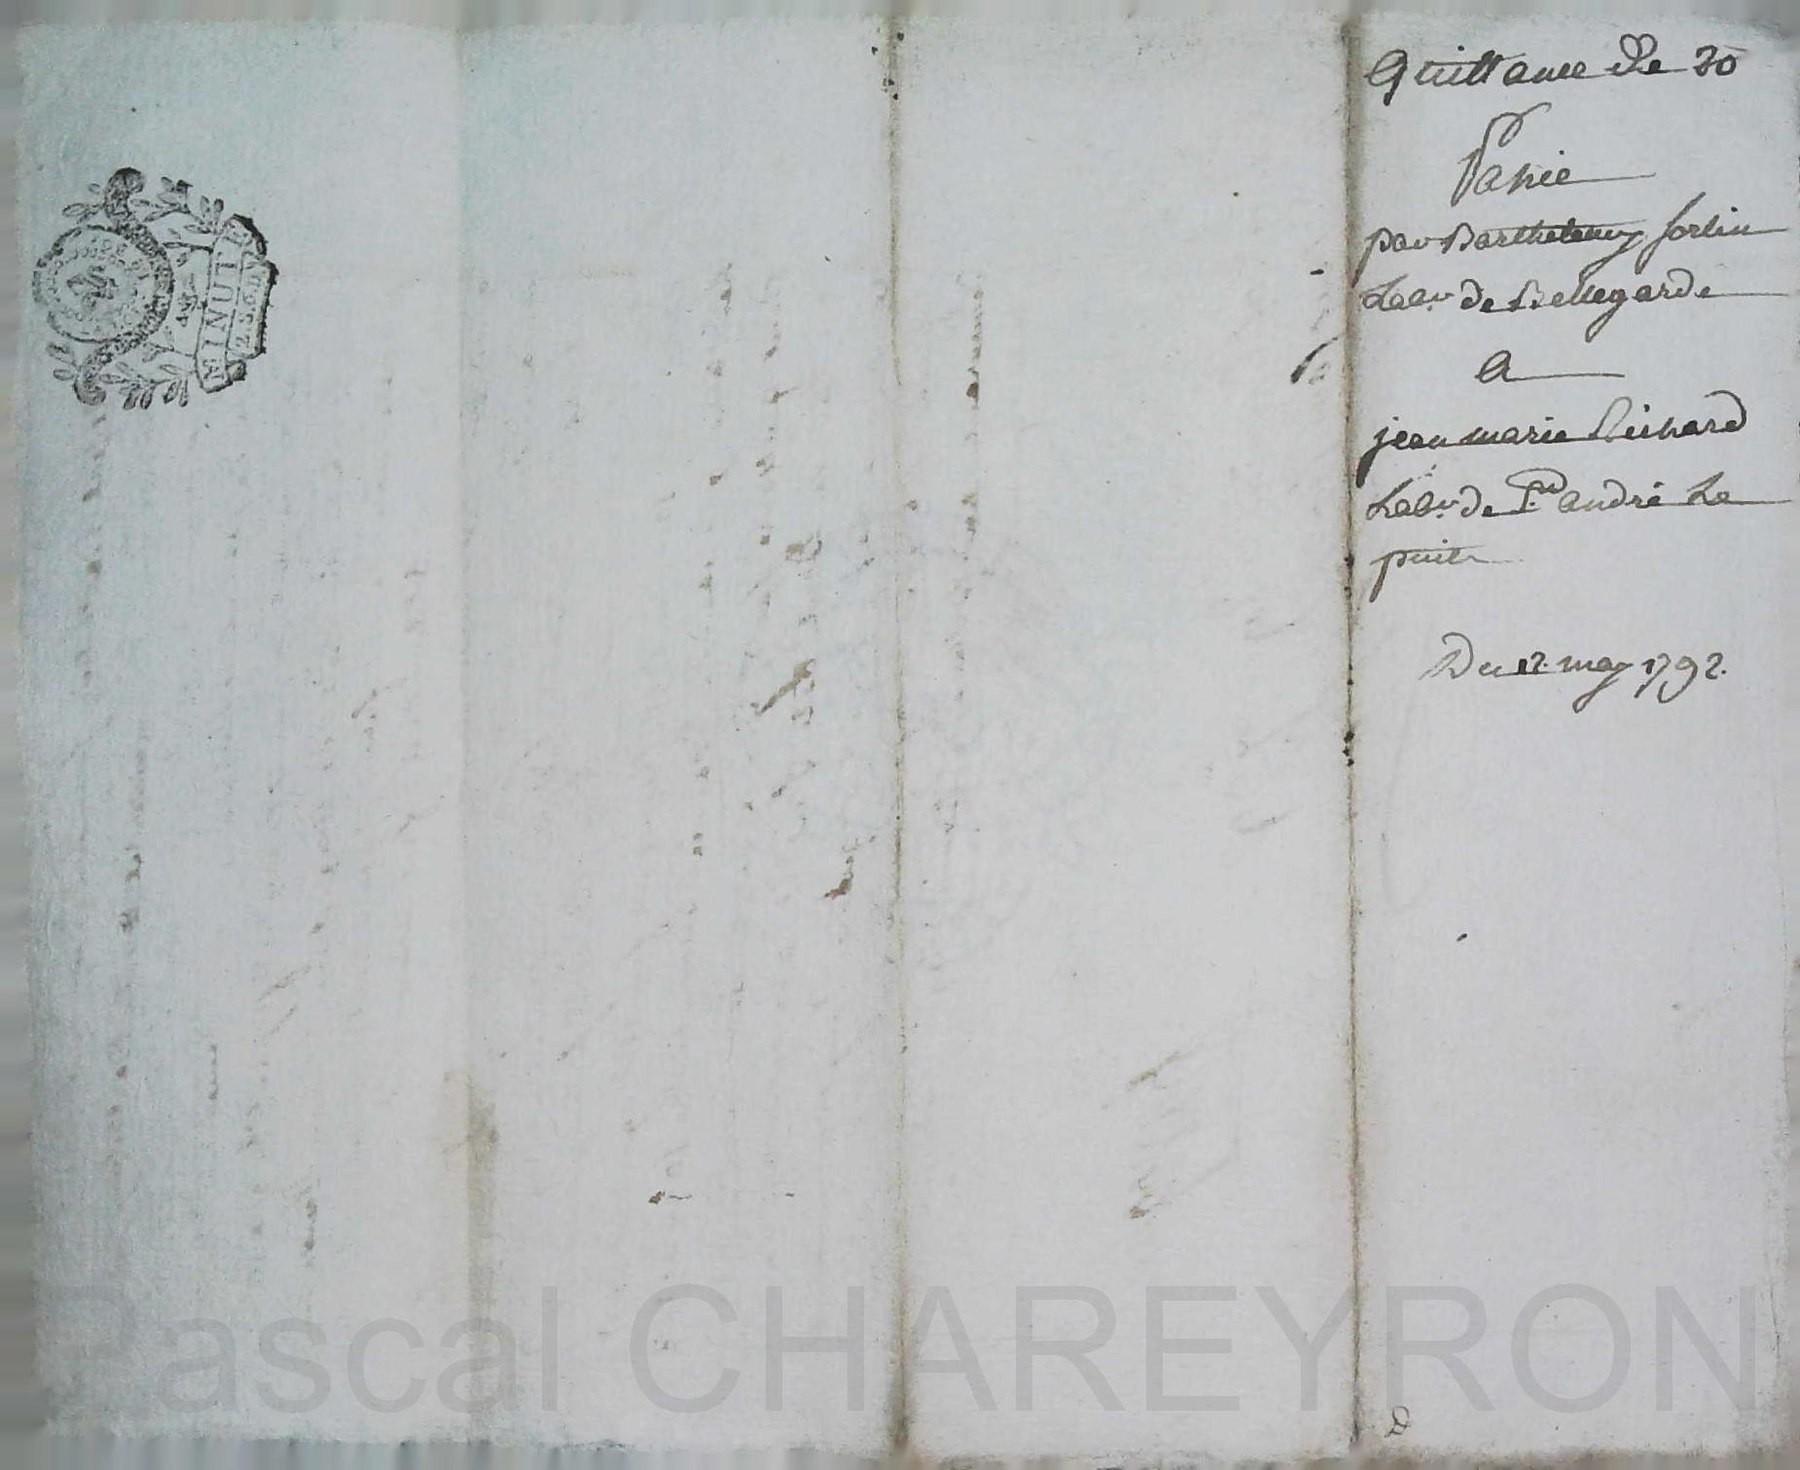 Quittance De 20
Passée
par Barthelemy fortin
Labr. de Bellegarde
a
jean marie Richard
Labr. de St. andré Le
puits
Du 12. may 1792.
MINUTE
2.S.6.D
Pascal CHAREYRON